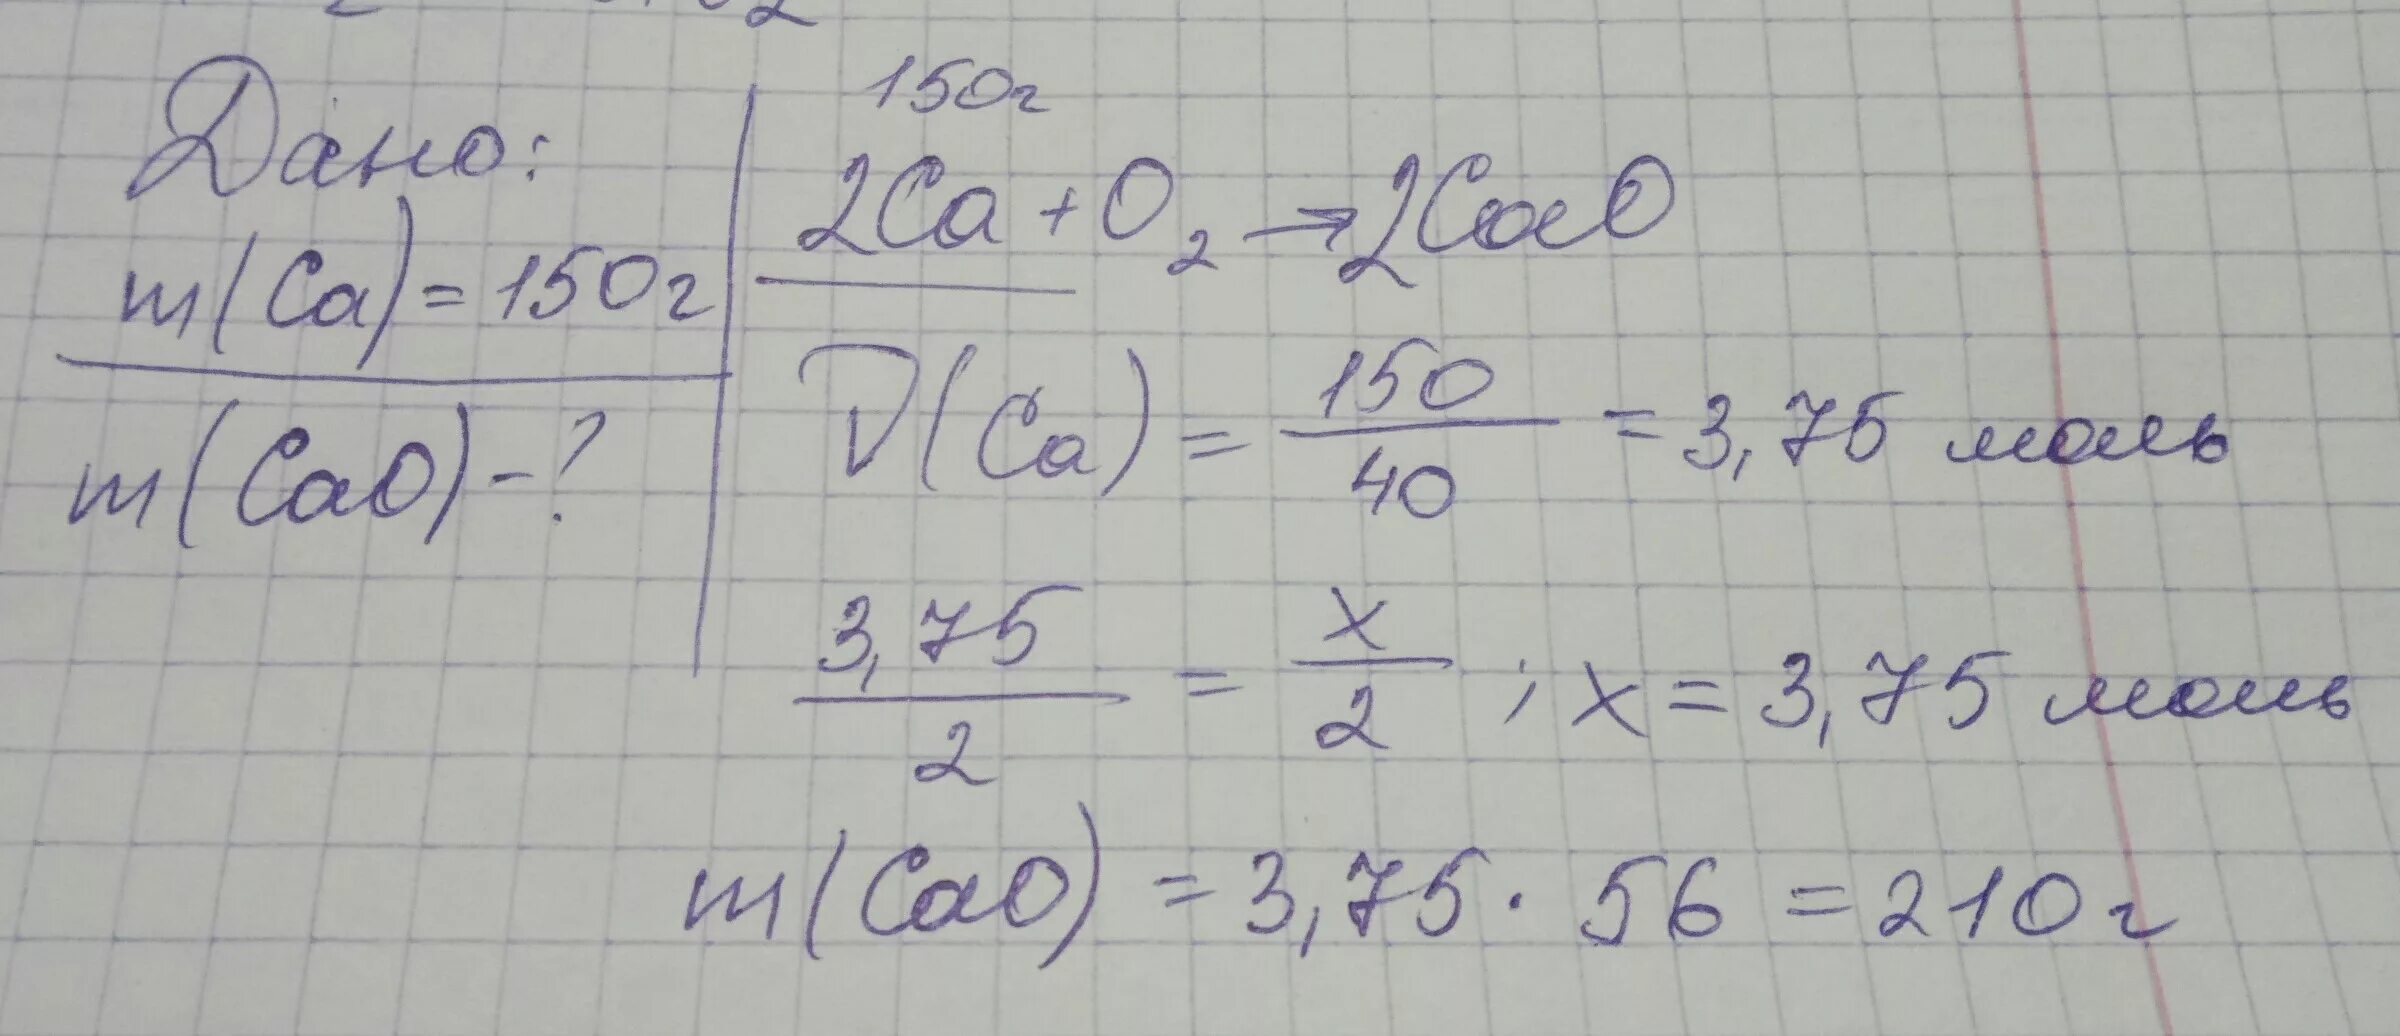 Дано:
m(Ca)=150г
m(CaO)-?
150г
2Ca+O₂→2CaO
ν(Ca)=150/40=3,75 моль
3,75/2=x/2; x=3,75 моль
m(CaO)=3,75·56=210г